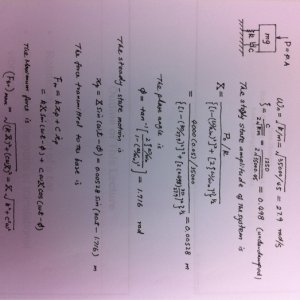 P = P₀A
mg
k c
ωn = √k/m = √35000/45 = 27.9 rad/s
ξ = c / 2√km = 1250 / 2√45000.45 = 0.498 (underdamped)
The steady-state amplitude of the system is
X = P₀/k / {[1-(ω/ωn)²]² + [2ξω/ωn]²}^½
The phase angle is
φ = tan⁻¹ [ 2ξω/ωn / 1-(ω/ωn)² ] = 1.716 rad
The steady-state motion is
xp = X sin(ωt-φ) = 0.00528 sin(ωt-1.716) m
The force transmitted to the base is
= kX sin(ωt-φ) + cωX cos(ωt-φ)
The maximum force is
(Ftr)max = √(kX)²+(cωX)² = X√k²+c²ω²